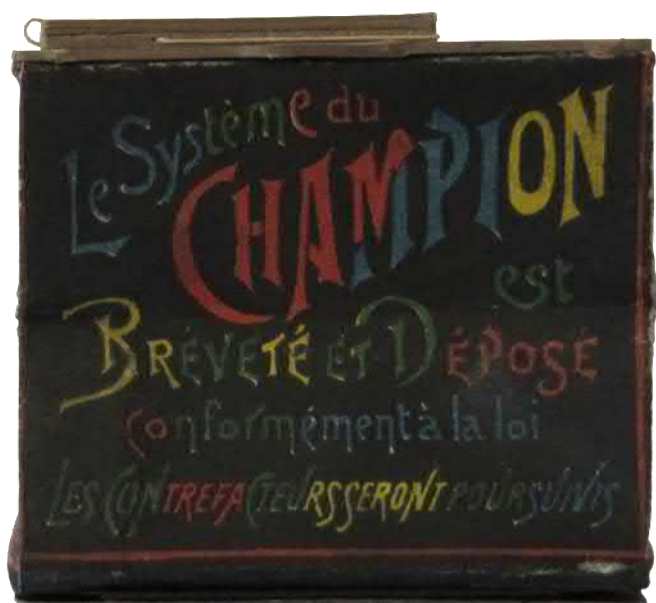 Le Système du
CHAMPION
est
BRÉVETÉ ET DÉPOSÉ
conformément à la loi
LES CONTREFACTEURS SERONT POURSUIVIS